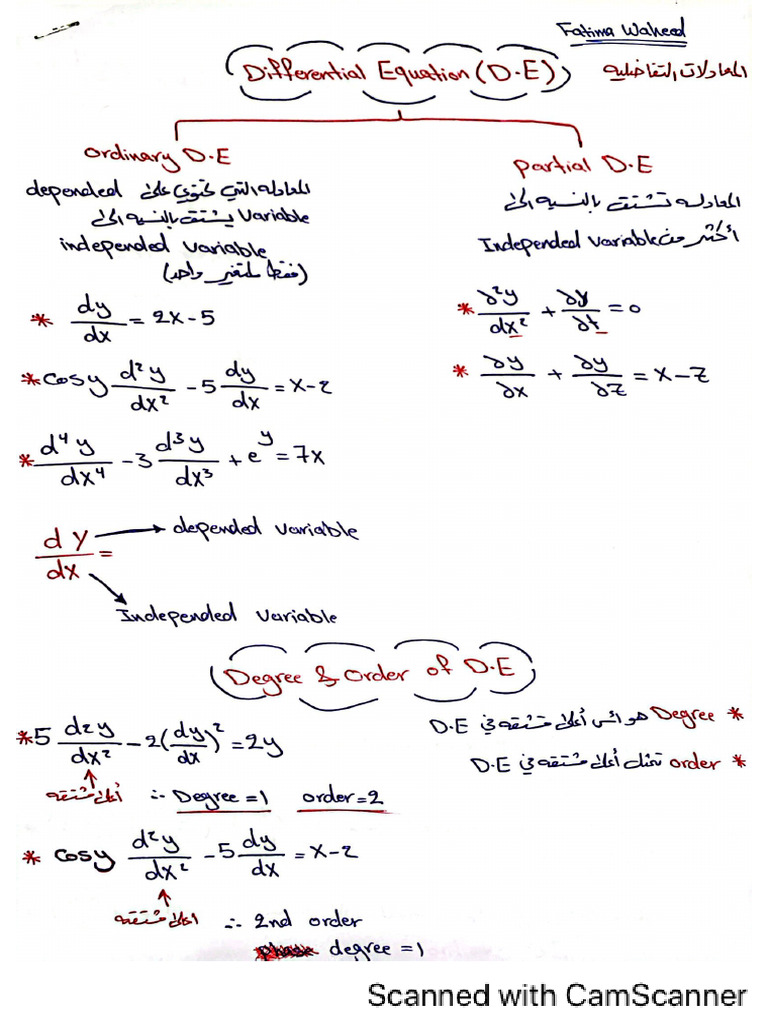 Fatima Waheed
Differential Equation (D.E) المعادلات التفاضليه
Ordinary D.E
المعادله التي تحتوي على depended
Variable يشتق بالنسبه الى
independed variable
(فقط لمتغير واحد)
* dy/dx = 2x - 5
* cosy d²y/dx² - 5 dy/dx = x - 2
* d⁴y/dx⁴ - 3 d³y/dx³ + e^y = 7x
dy/dx =
depended variable
Independed variable
Partial D.E
المعادله تشتق بالنسبه الى
أكثر من Independed variable
* ∂²y/dx² + ∂y/∂t = 0
* ∂y/∂x + ∂y/∂z = x - z
Degree & Order of D.E
* Degree هو اس أعلى مشتقه في D.E
* order تمثل أعلى مشتقه في D.E
* 5 d²y/dx² - 2(dy/dx)² = 2y
أعلى مشتقه ∴ Degree = 1 order = 2
* cosy d²y/dx² - 5 dy/dx = x - 2
اعلى مشتقه ∴ 2nd order
degree = 1
Scanned with CamScanner